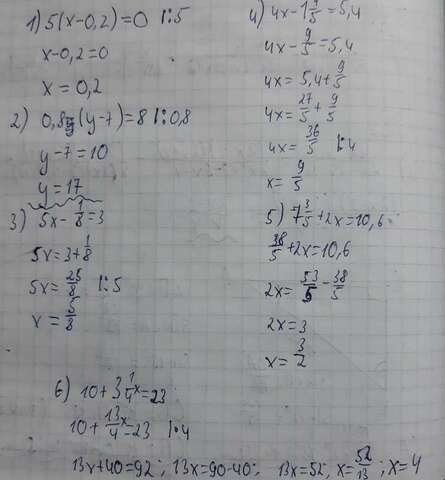 1) 5(x-0,2)=0 |:5
x-0,2=0
x=0,2
2) 0,8(y-7)=8 |:0,8
y-7=10
y=17
3) 5x-1/8=3
5x=3+1/8
5x=25/8 |:5
x=5/8
4) 4x-1 4/5=5,4
4x-9/5=5,4
4x=5,4+9/5
4x=27/5+9/5
4x=36/5 |:4
x=9/5
5) 7 3/5+2x=10,6
38/5+2x=10,6
2x=53/5-38/5
2x=3
x=3/2
6) 10+3 1/4x=23
10+13/4x=23 |·4
13x+40=92; 13x=90-40; 13x=52, x=52/13; x=4